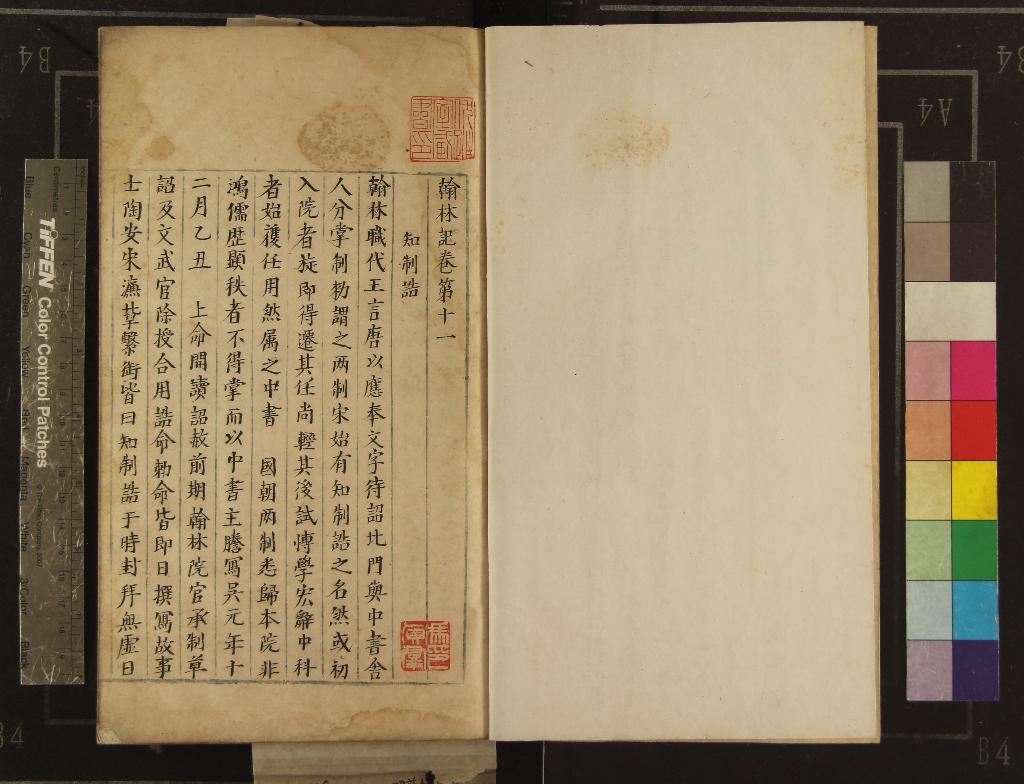 翰林記卷第十一
知制誥
翰林職代王言唐以應奉文字待詔北門與中書舍
人分掌制勑謂之两制宋始有知制誥之名然或初
入院者旋即得遷其任尚輕其後試博學宏辭中科
者始獲任用然属之中書 國朝两制悉歸本院非
鴻儒歴顯秩者不得掌而以中書主謄寫吳元年十
二月乙丑 上命開讀詔赦前期翰林院官承制草
詔及文武官除授合用誥命勑命皆即日撰寫故事
士陶安宋濂輩繫銜皆曰知制誥于時封拜無虛日
TIFFEN Color Control Patches
Blue
Cyan
Green
Yellow
Red
Magenta
White
3/Color
Black
B4
A4
B4
A4
B4
B4